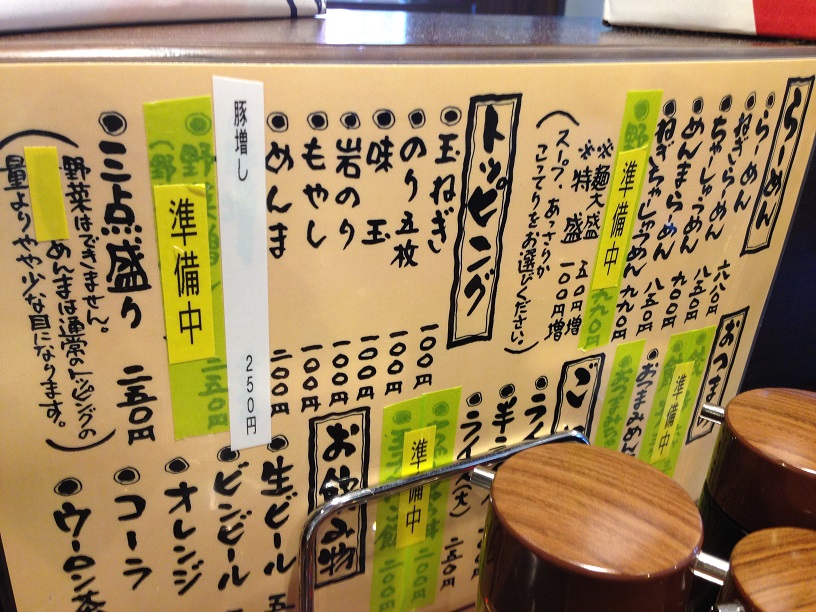 らーめん
らーめん 六八〇円
ねぎらーめん 八五〇円
ちゃーしゅうめん 八五〇円
めんまらーめん 八五〇円
ねぎちゃーしゅうめん 九九〇円
準備中
九九〇円
※麺大盛 五〇円増
※特盛 一〇〇円増
(スープ、あっさりか
こってりをお選びください。)
トッピング
玉ねぎ 一〇〇円
のり五枚 一〇〇円
味玉 一〇〇円
岩のり 一〇〇円
もやし 一〇〇円
めんま 二〇〇円
豚増し 250円
準備中
二五〇円
三点盛り 二五〇円
(野菜はできません。
めんまは通常のトッピングの
量よりやや少な目になります。)
おつま
準備中
おつまみめん
ご
ライ
半
ラ
(大) 二五〇円
準備中
二〇〇円
二〇〇円
お飲み物
生ビール 五
ビンビール
オレンジ
コーラ
ウーロン茶